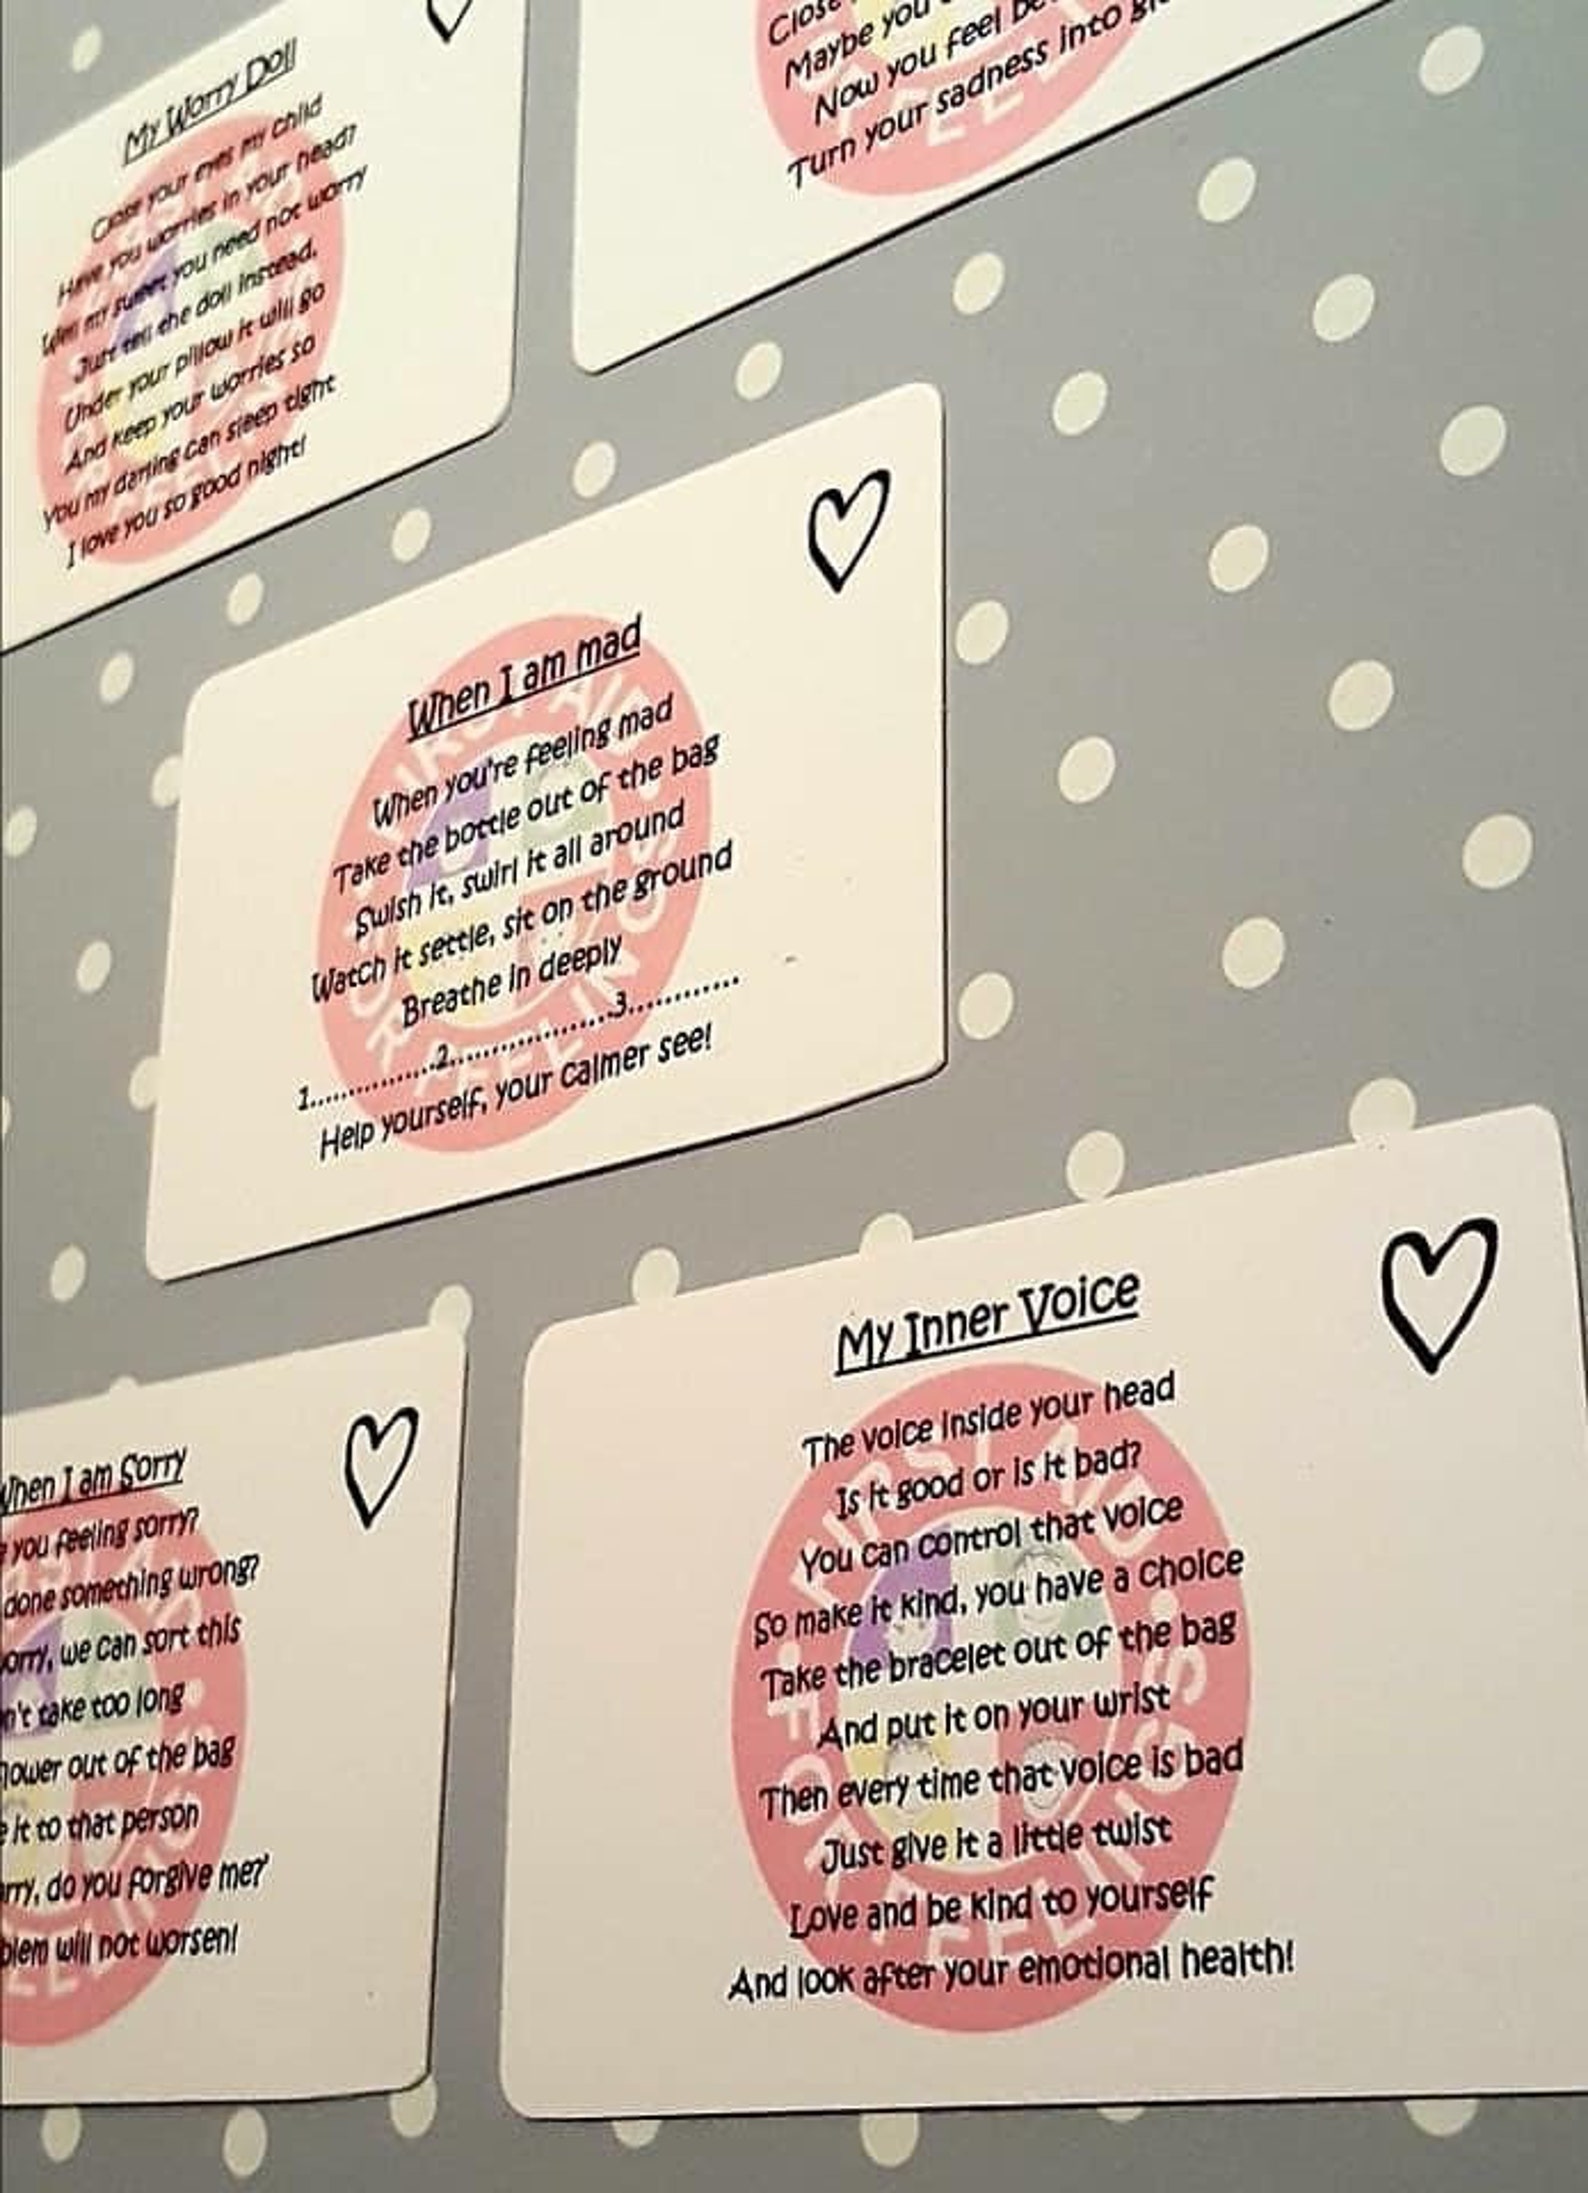 My Worry Doll
Close your eyes my child
Have you worries in your head?
Well my sweet you need not worry
Just tell the doll instead.
Under your pillow it will go
And keep your worries so
You my darling can sleep tight
I love you so good night!
Close
Maybe you
Now you feel
Turn your sadness into
When I am mad
When you're feeling mad
Take the bottle out of the bag
Swish it, swirl it all around
Watch it settle, sit on the ground
Breathe in deeply
1...............2..................3............
Help yourself, your calmer see!
FIRST AID
FOR FEELINGS
When I am Sorry
you feeling sorry?
done something wrong?
we can sort this
take too long
out of the bag
it to that person
do you forgive me?'
will not worsen!
My Inner Voice
The voice inside your head
Is it good or is it bad?
You can control that voice
So make it kind, you have a choice
Take the bracelet out of the bag
And put it on your wrist
Then every time that voice is bad
Just give it a little twist
Love and be kind to yourself
And look after your emotional health!
FIRST AID
FOR FEELINGS